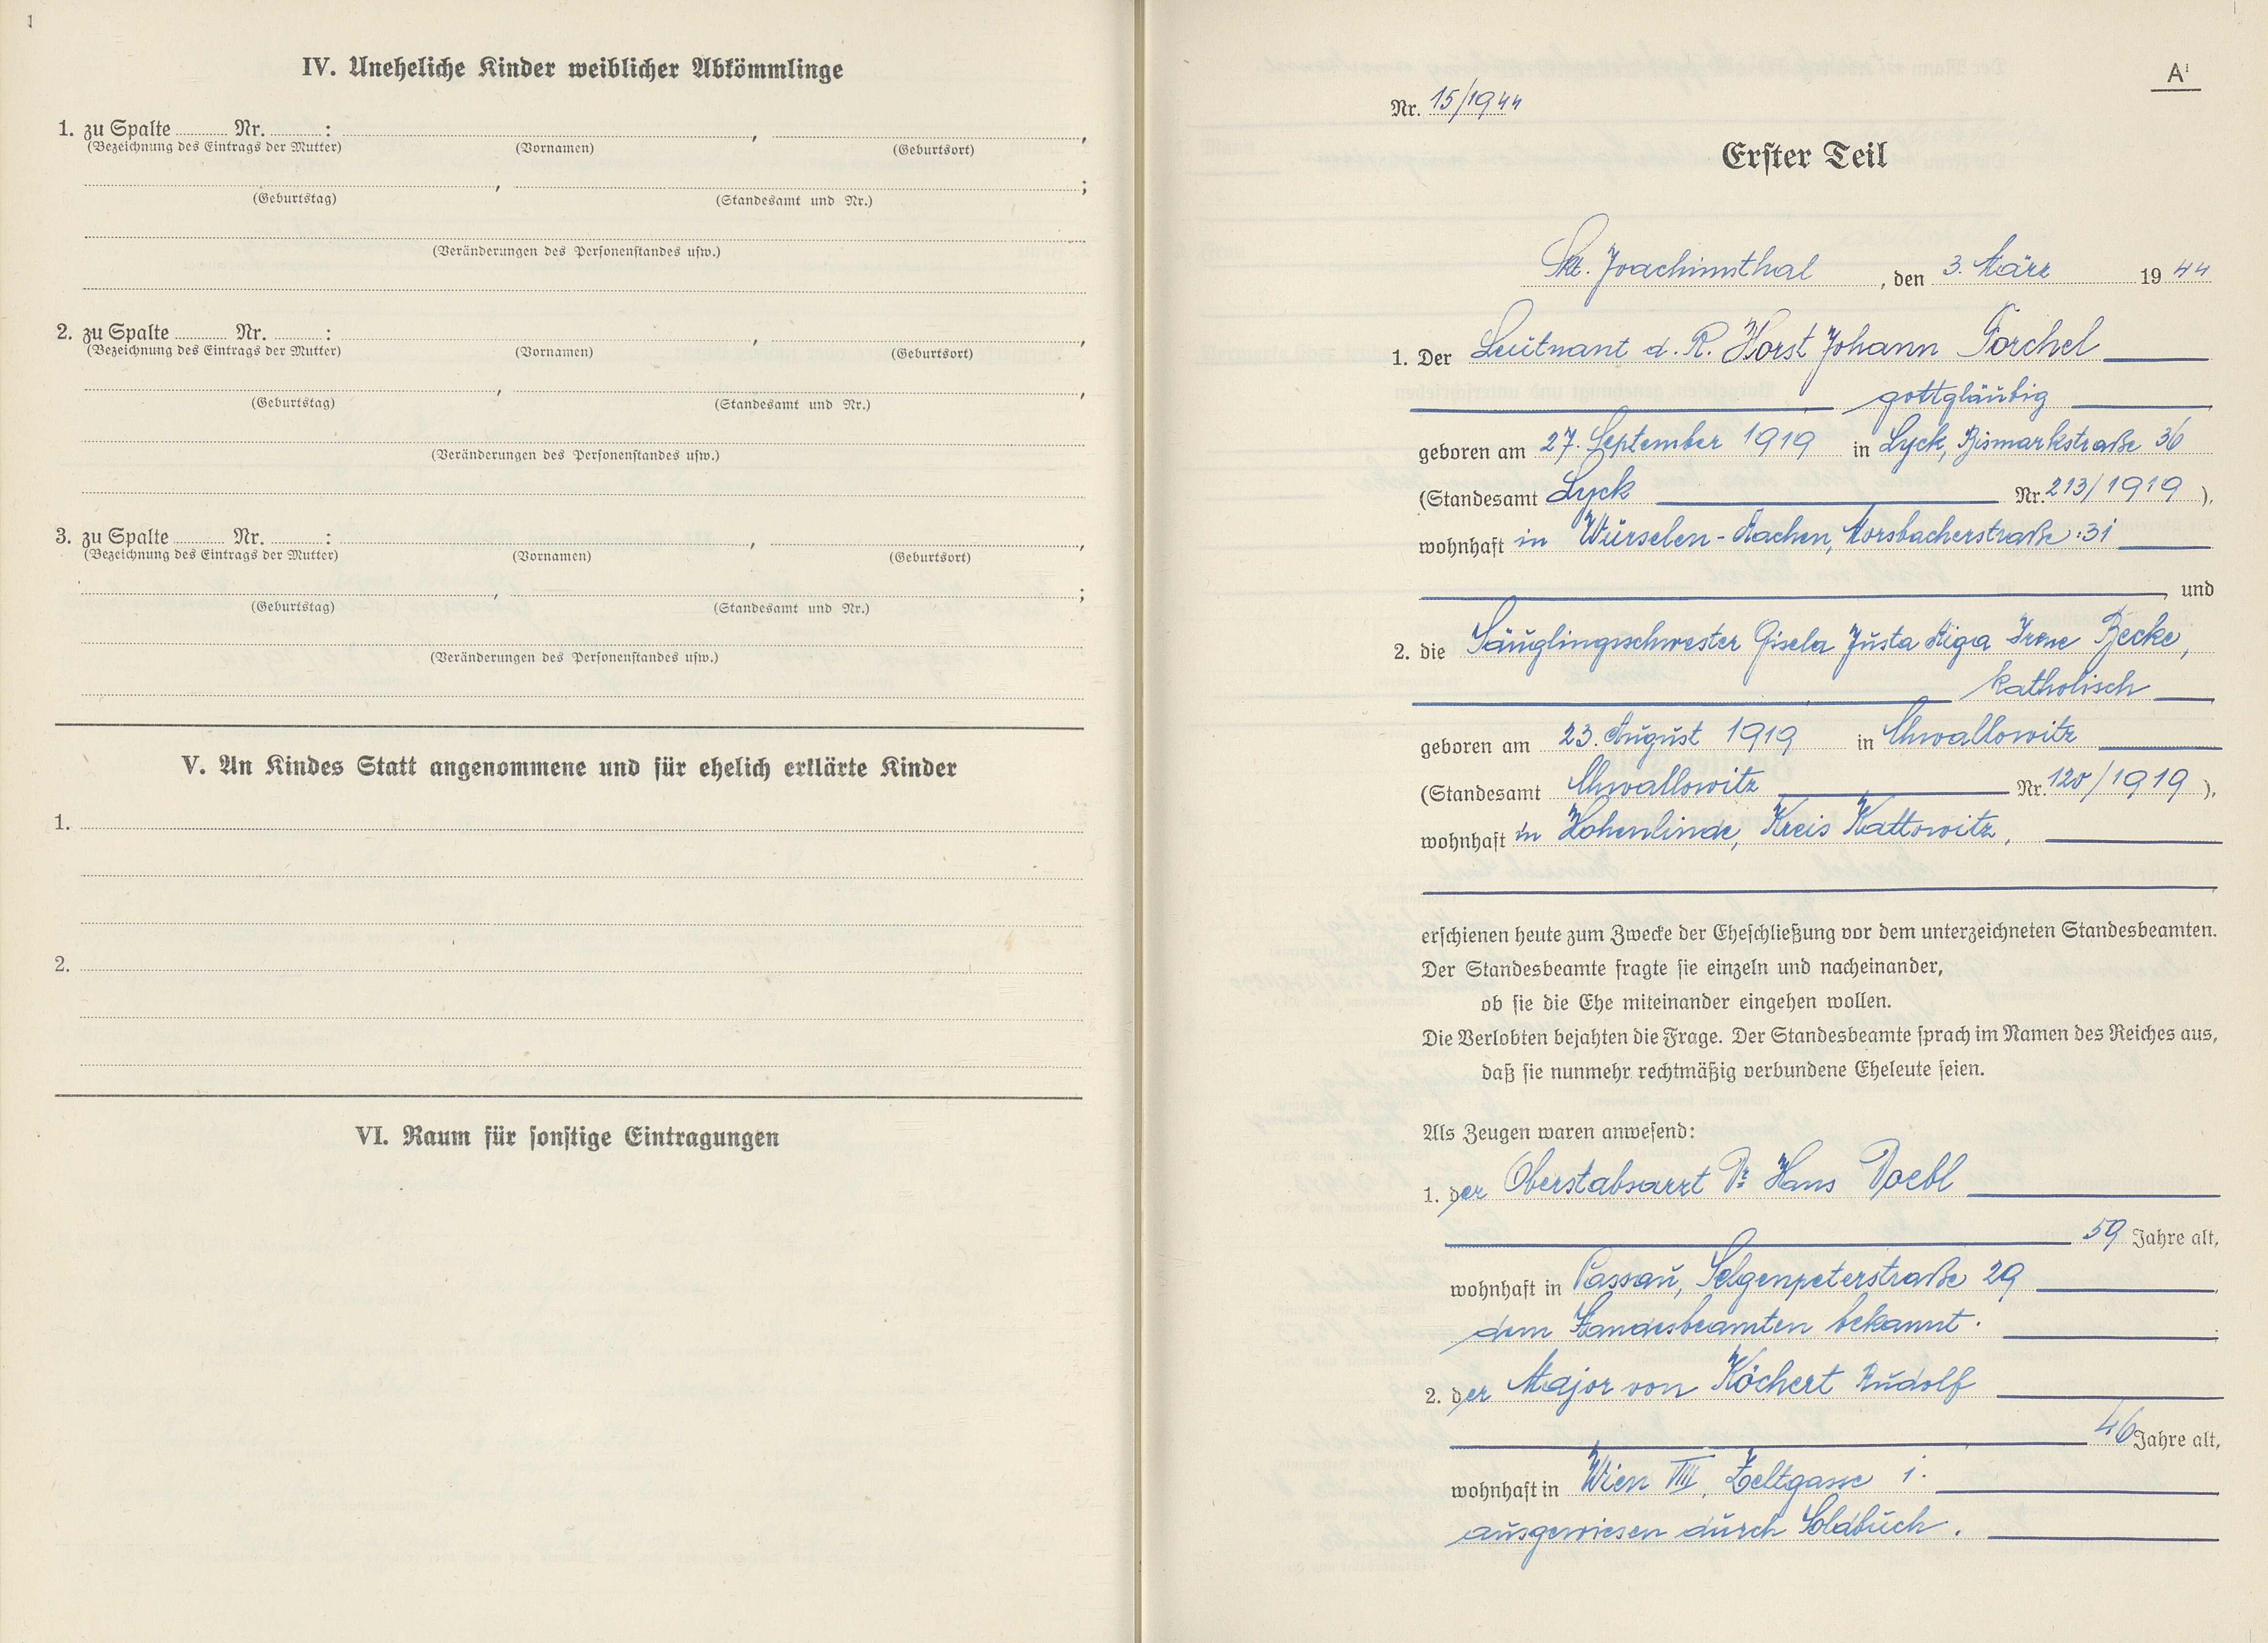 IV. Uneheliche Kinder weiblicher Abkömmlinge
1. zu Spalte ........ Nr. ........ : , ,
(Bezeichnung des Eintrags der Mutter) (Vornamen) (Geburtsort)
, ;
(Geburtstag) (Standesamt und Nr.)
(Veränderungen des Personenstandes usw.)
2. zu Spalte ........ Nr. ........ : , ,
(Bezeichnung des Eintrags der Mutter) (Vornamen) (Geburtsort)
, ,
(Geburtstag) (Standesamt und Nr.)
(Veränderungen des Personenstandes usw.)
3. zu Spalte ........ Nr. ........ : , ,
(Bezeichnung des Eintrags der Mutter) (Vornamen) (Geburtsort)
, ;
(Geburtstag) (Standesamt und Nr.)
(Veränderungen des Personenstandes usw.)
V. An Kindes Statt angenommene und für ehelich erklärte Kinder
1.
2.
VI. Raum für sonstige Eintragungen
A¹
Nr. 15/1944
Erster Teil
Skt. Joachimsthal, den 3. März 1944
1. Der Leutnant d. R. Horst Johann Forchel
gottgläubig
geboren am 27. September 1919 in Lyck, Bismarkstraße 36
(Standesamt Lyck Nr. 213/1919 ),
wohnhaft in Würselen-Aachen, Morsbacherstraße 31
, und
2. die Säuglingsschwester Gisela Justa Aiga Irene Becke,
katholisch
geboren am 23. August 1919 in Chwallowitz
(Standesamt Chwallowitz Nr. 120/1919 ),
wohnhaft in Hohenlinde, Kreis Kattowitz,
erschienen heute zum Zwecke der Eheschließung vor dem unterzeichneten Standesbeamten.
Der Standesbeamte fragte sie einzeln und nacheinander,
ob sie die Ehe miteinander eingehen wollen.
Die Verlobten bejahten die Frage. Der Standesbeamte sprach im Namen des Reiches aus,
daß sie nunmehr rechtmäßig verbundene Eheleute seien.
Als Zeugen waren anwesend:
1. der Oberstabsarzt Dr Hans
59 Jahre alt,
wohnhaft in Passau, 29
dem Standesbeamten bekannt.
2. der Major von Köchert Rudolf
46 Jahre alt,
wohnhaft in Wien VIII, Zeltgasse 1.
ausgewiesen durch Soldbuch.